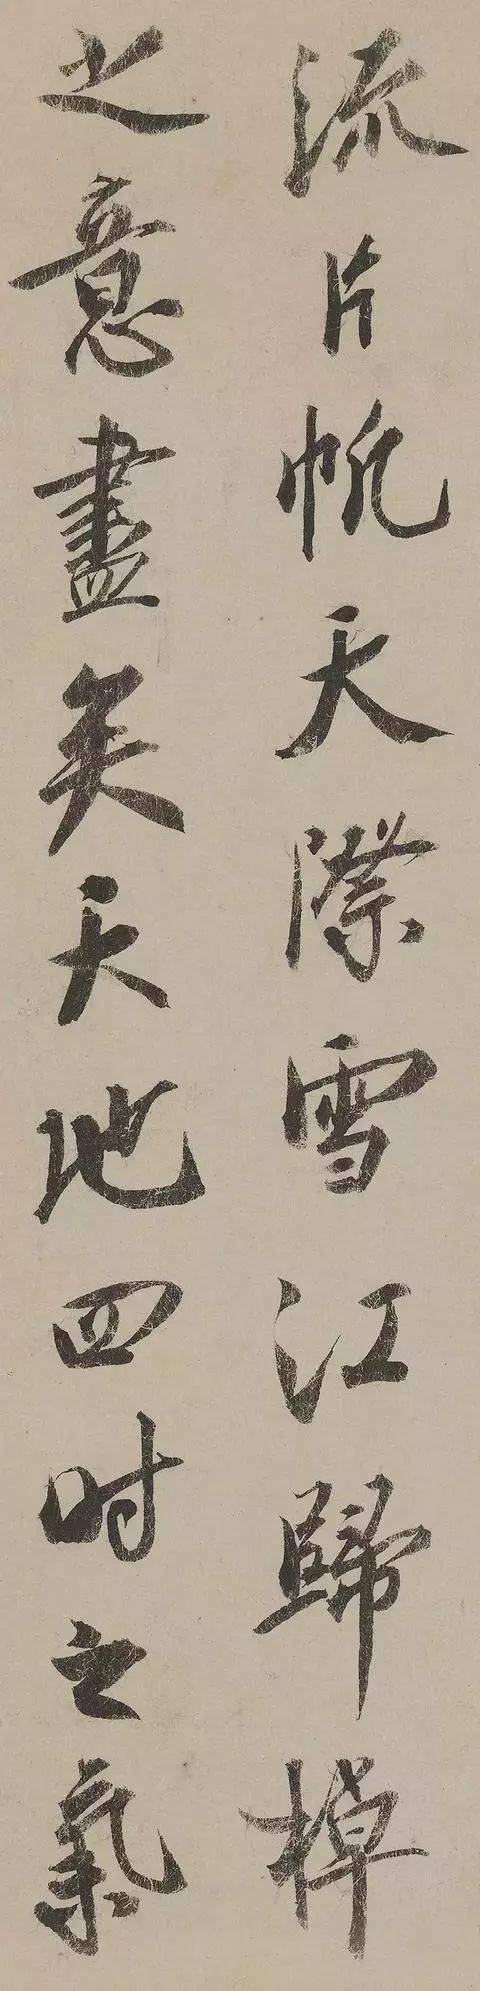 流片帆天際雪江歸棹
之意盡矣天地四时之氣